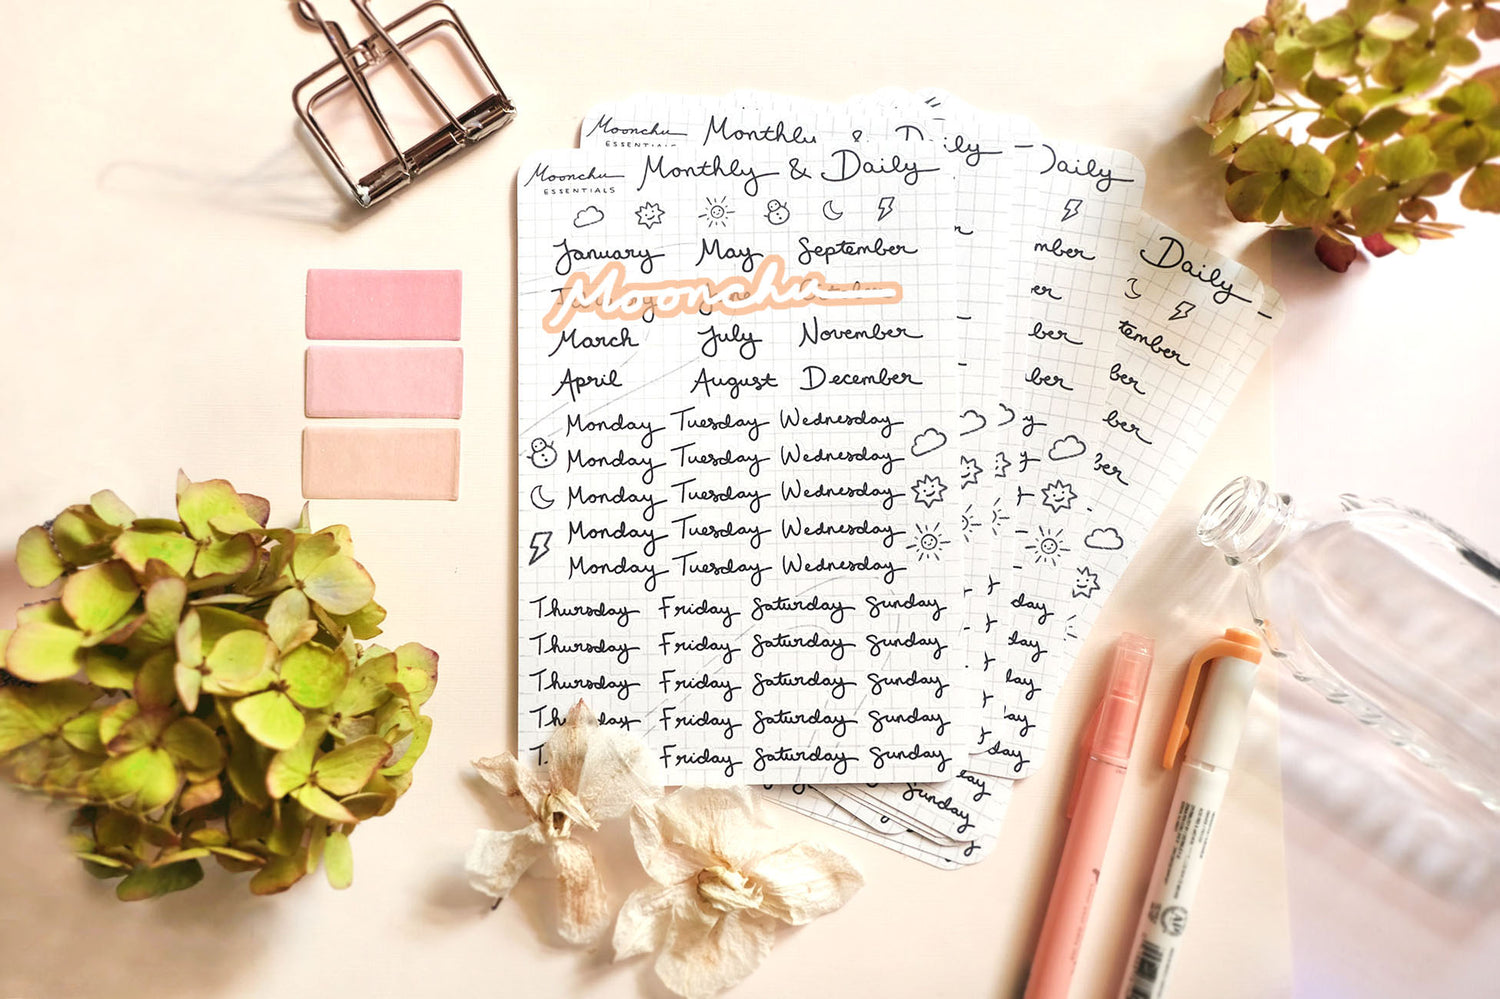 Moonchu Monthly & Daily
ESSENTIALS
Daily
Moonchu Monthly & Daily
ESSENTIALS
Daily
January May September
Moonchu
March July November
April August December
Monday Tuesday Wednesday
Monday Tuesday Wednesday
Monday Tuesday Wednesday
Monday Tuesday Wednesday
Monday Tuesday Wednesday
Thursday Friday Saturday Sunday
Thursday Friday Saturday Sunday
Thursday Friday Saturday Sunday
Friday Saturday Sunday
Friday Saturday Sunday
Sunday